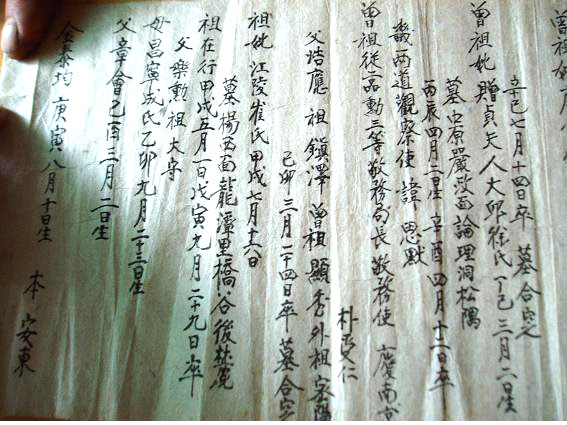 辛巳七月十四日卒 墓合窆
曾祖妣 贈貞夫人大邱徐氏 丁巳三月二日生
墓中原嚴政面論理洞松隅
丙辰四月二日生 辛酉四月十二日卒
畿兩道觀察使 諱 思默
曾祖從一品勳三等敬務局長敬務使 廣南
朴 仁
父 應 祖鎭澤 曾祖顯秀 外祖
己卯三月二十四日卒 墓合窆
祖妣江陵崔氏甲戌七月十六日
墓楊西面龍潭里橋谷後麓
祖在行甲戌五月一日戊寅九月二十九日卒
父樂勲祖大
母昌寧成氏乙卯九月二十三日生
父章會己酉三月二日生
金泰均 庚寅八月十日生 本 安東